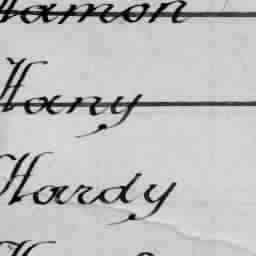 Hamon
Hany
Hardy